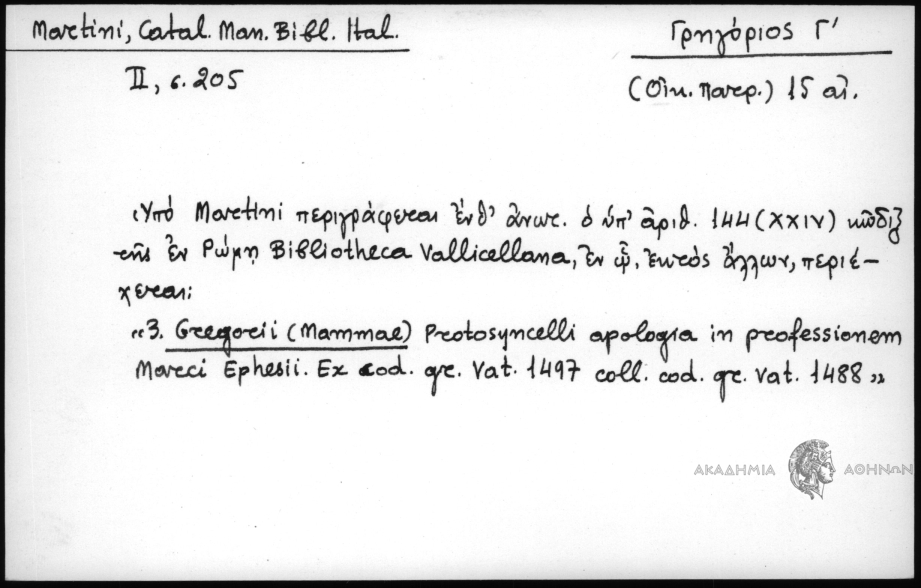 Martini, Catal. Man. Bibl. Ital.
Γρηγόριος Γ'
II, σ. 205
(Οἰκ. Πατρ.) 15 αἰ.
Ὑπό Martini περιγράφεται ἔνθ' ἄνωτ. ὁ ὑπ' ἀριθ. 144 (XXIV) κῶδιξ
τῆς ἐν Ρώμῃ Bibliotheca Vallicellana, ἐν ᾧ, ἐκτός ἄλλων, περιέ-
χεται:
«3. Gregorii (Mammae) Protosyncelli apologia in professionem
Marci Ephesii. Ex cod. gr. Vat. 1497 coll. cod. gr. Vat. 1488»
ΑΚΑΔΗΜΙΑ ΑΘΗΝΩΝ